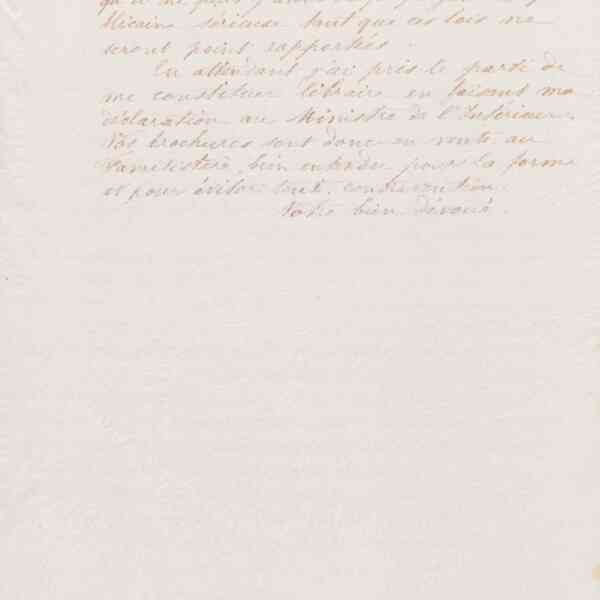 qu'il ne
blicains sérieux tant que ces lois ne
seront point rapportées.
En attendant j'ai pris le parti de
me constituer libraire en faisant ma
déclaration au Ministre de l'Intérieur.
Vos brochures sont donc en vente au
Familistère, bien entendu pour la forme
et pour éviter toute contravention.
Votre bien dévoué.